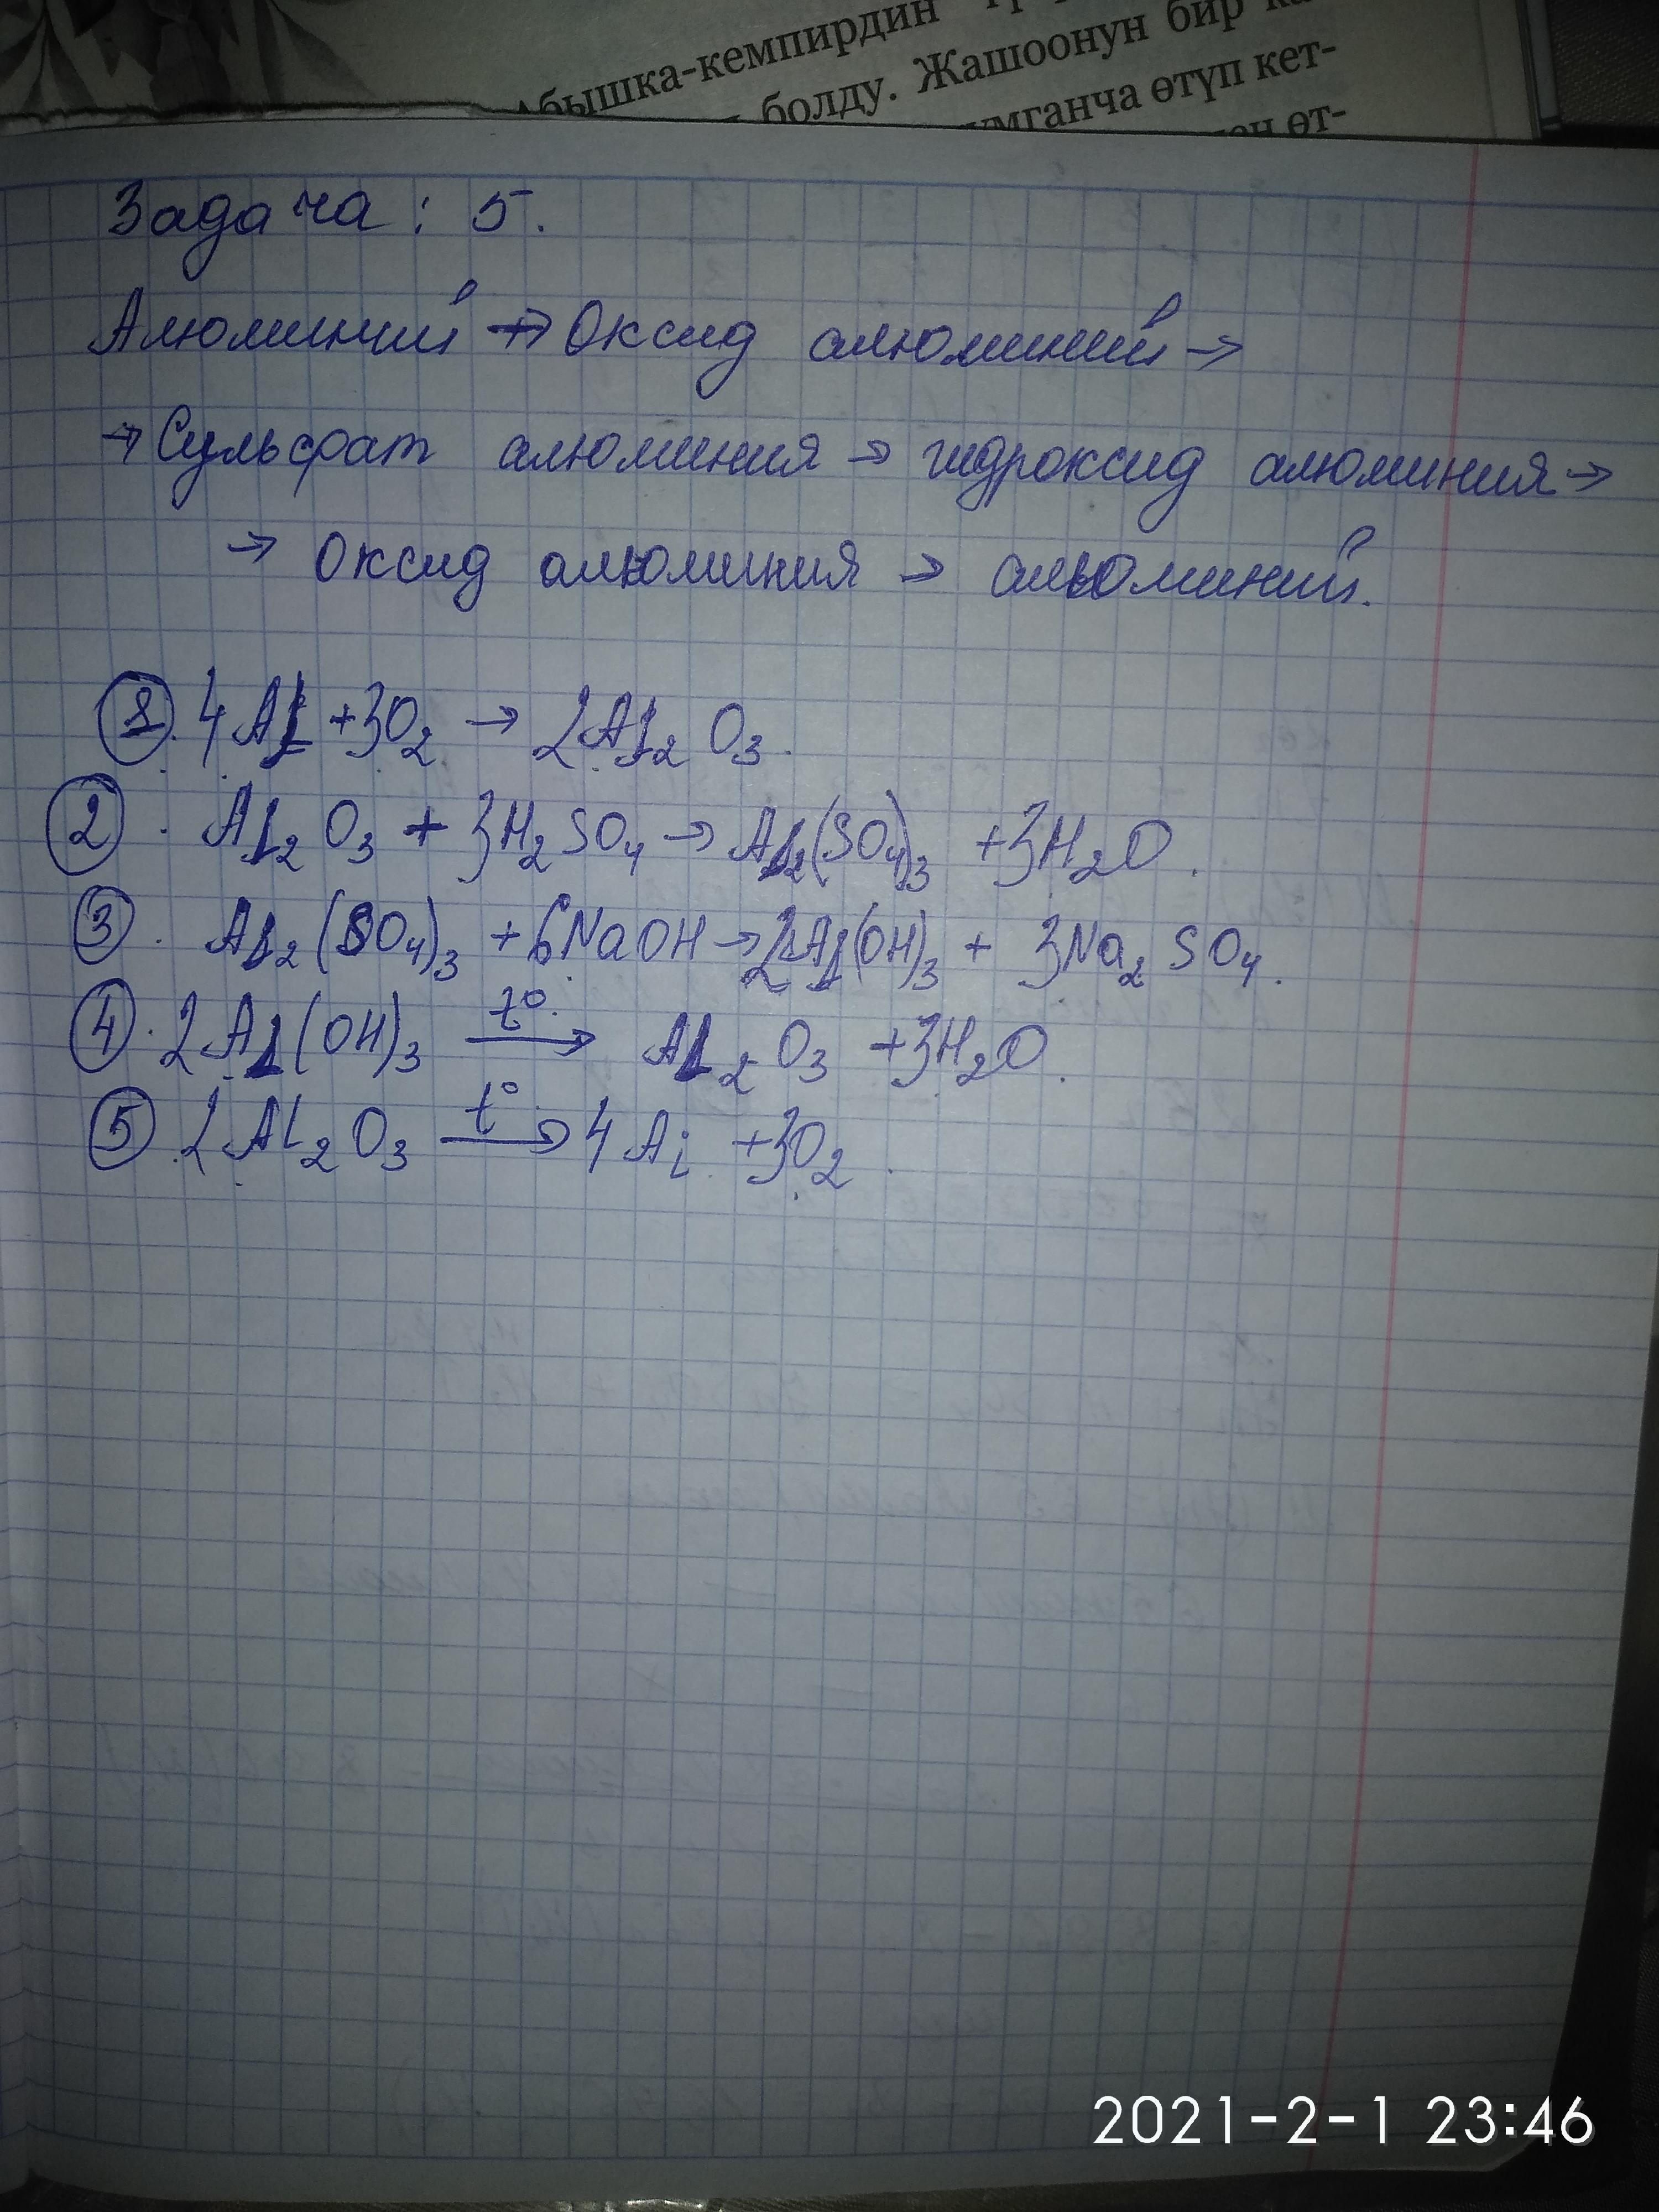 Абышка-кемпирдин
болду. Жашоонун бир
өтүп кет-
өт-
Задача: 5.
Алюминий → Оксид алюминий →
→ Сульфат алюминия → гидроксид алюминия →
→ Оксид алюминия → алюминий.
① 4Al + 3O₂ → 2Al₂O₃.
② Al₂O₃ + 3H₂SO₄ → Al₂(SO₄)₃ + 3H₂O.
③ Al₂(SO₄)₃ + 6NaOH → 2Al(OH)₃ + 3Na₂SO₄.
④ 2Al(OH)₃ t° → Al₂O₃ + 3H₂O.
⑤ 2Al₂O₃ t° → 4Al + 3O₂.
2021-2-1 23:46